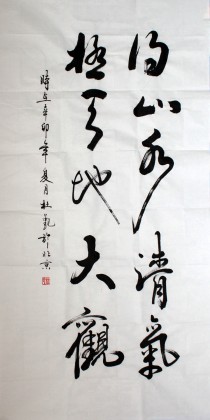 得山水清氣
極天地大觀
時在辛卯年夏月杜